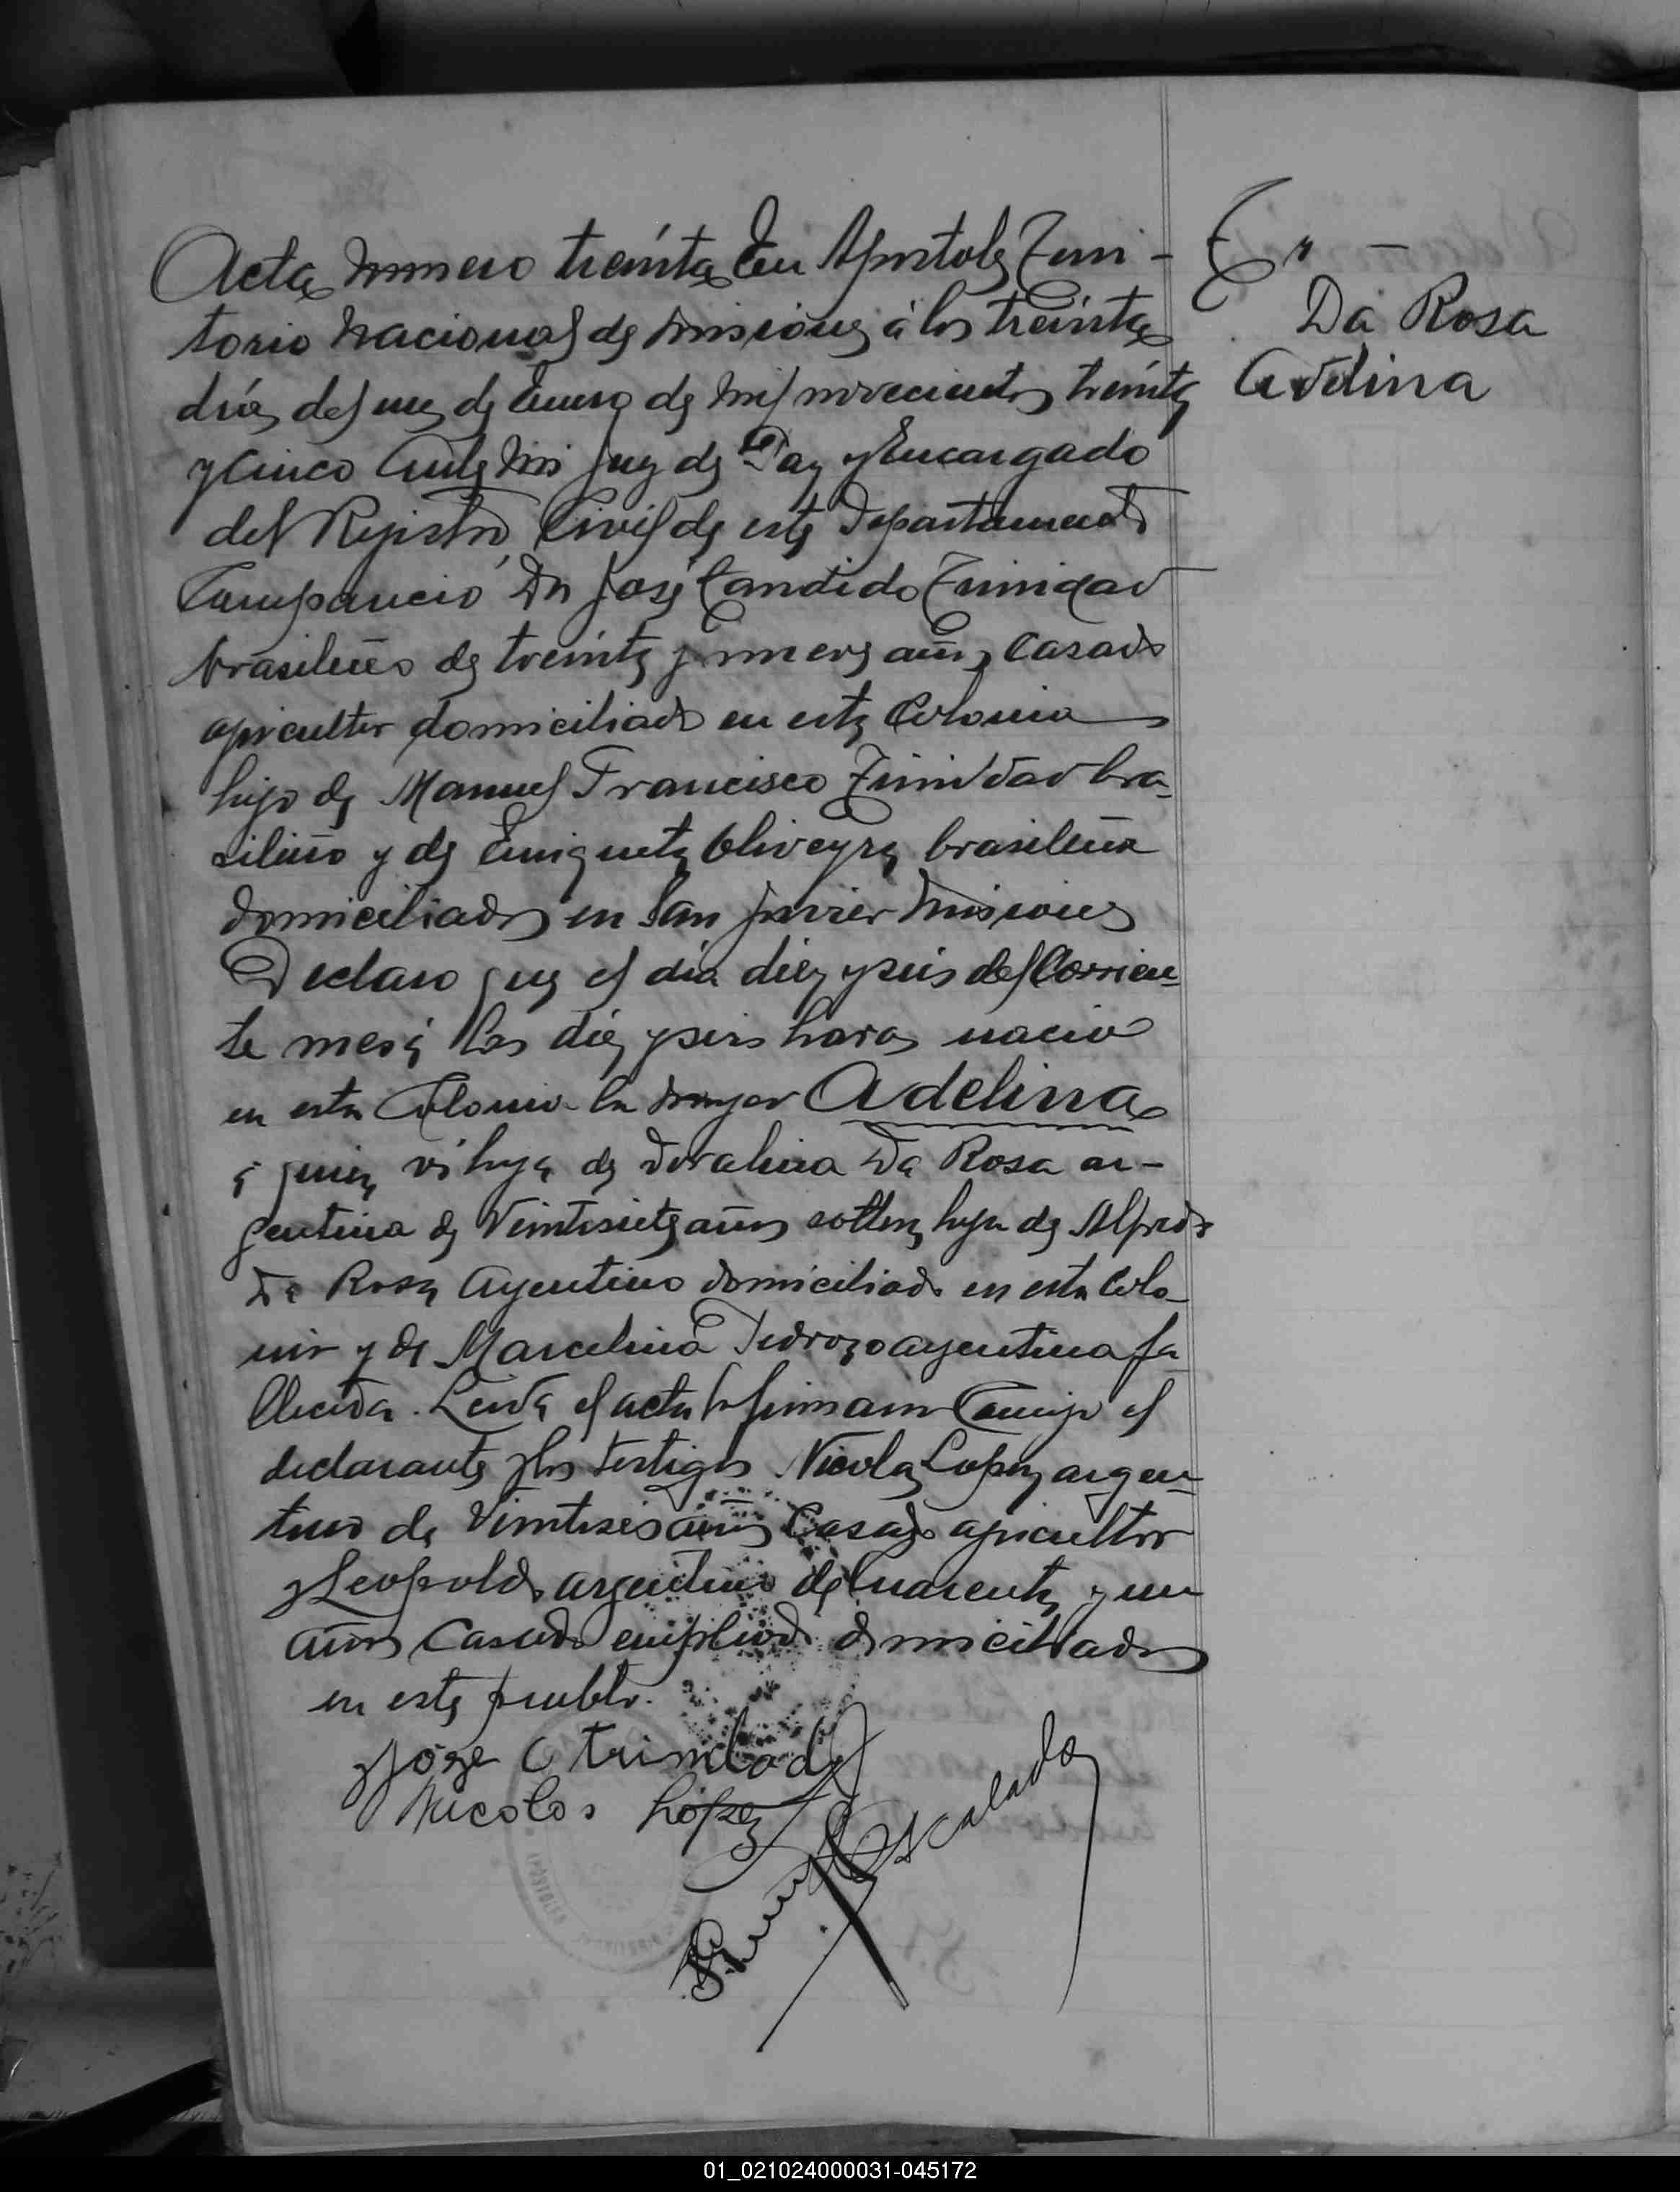 Acta número treinta En Apostoles Terri-
torio Nacional de Misiones á los treinta
días del mes de Enero de mil novecientos treinta
y Cinco Ante Mi Juez de Paz y Encargado
del Rejistro Civil de este Departamento
Compareció Dn José Candido Trinidad
brasileño de treinta y nueve años Casado
agricultor domiciliado en esta Colonia
hijo de Manuel Francisco Trinidad bra-
sileño y de Enriqueta Oliveyra brasileña
domiciliados en San Javier Misiones
Declaro que el día diez y seis del Corrien-
te mes á las diez y seis horas nació
en esta Colonia la mujer Adelina
á quien vi hija de Doralina Da Rosa ar-
gentina de Veintisiete años soltera hija de Alfredo
Da Rosa Argentino domiciliado en esta Colo-
nia y de Marcelina Pedrozo argentina fa
llecida. Leida el acta la firmaron Conmigo el
declarante y los testigos Nicolas Lopez argen-
tino de Veintiseis años Casado agricultor
y Leopoldo argentino de Cuarenta y un
años Casado empleado domiciliados
en este pueblo.
José C Trinidad
Nicolas López
Escalada
Da Rosa
Adelina
APOSTOLES
01_021024000031-045172